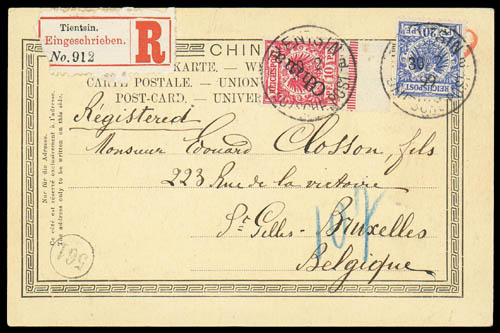 Tientsin.
Eingeschrieben.
No. 912
R
CHIN
KARTE. — W
CARTE POSTALE. — UNION
POST-CARD. — UNIVER
Nur für die Adresse.
Ce côté est réservé exclusivement à l'adresse.
The address only to be written on this side.
REICHSPOST
10 PF
REICHSPOST
20 PF
China
TIENTSIN
TIENTSIN
30
Registered
Monsieur Edouard Closson, fils
223 Rue de la victoire
St Gilles - Bruxelles
Belgique
107
564